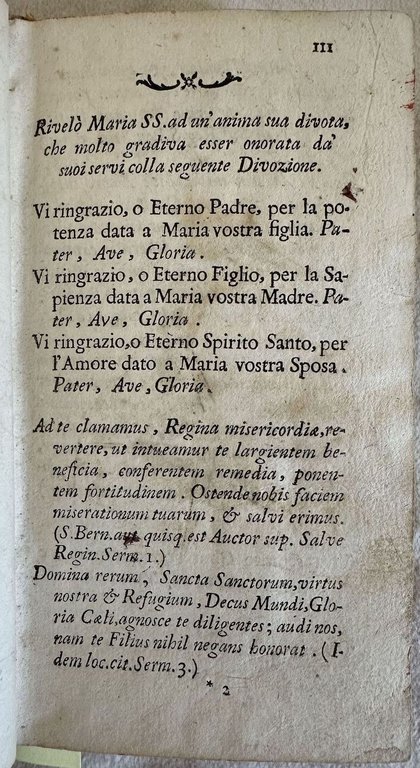 III
Rivelò Maria SS. ad un'anima sua divota,
che molto gradiva esser onorata da'
suoi servi colla seguente Divozione.
Vi ringrazio, o Eterno Padre, per la po-
tenza data a Maria vostra figlia. Pa-
ter, Ave, Gloria.
Vi ringrazio, o Eterno Figlio, per la Sa-
pienza data a Maria vostra Madre. Pa-
ter, Ave, Gloria.
Vi ringrazio, o Eterno Spirito Santo, per
l'Amore dato a Maria vostra Sposa.
Pater, Ave, Gloria.
Ad te clamamus, Regina misericordiæ, re-
vertere, ut intueamur te largientem be-
neficia, conferentem remedia, ponen-
tem fortitudinem. Ostende nobis faciem
miserationum tuarum, & salvi erimus.
(S. Bern. aut quisq. est Auctor sup. Salve
Regin. Serm. 1.)
Domina rerum, Sancta Sanctorum, virtus
nostra & Refugium, Decus Mundi, Glo-
ria Cæli, agnosce te diligentes; audi nos,
nam te Filius nihil negans honorat. (I-
dem loc. cit. Serm. 3.)
* 2